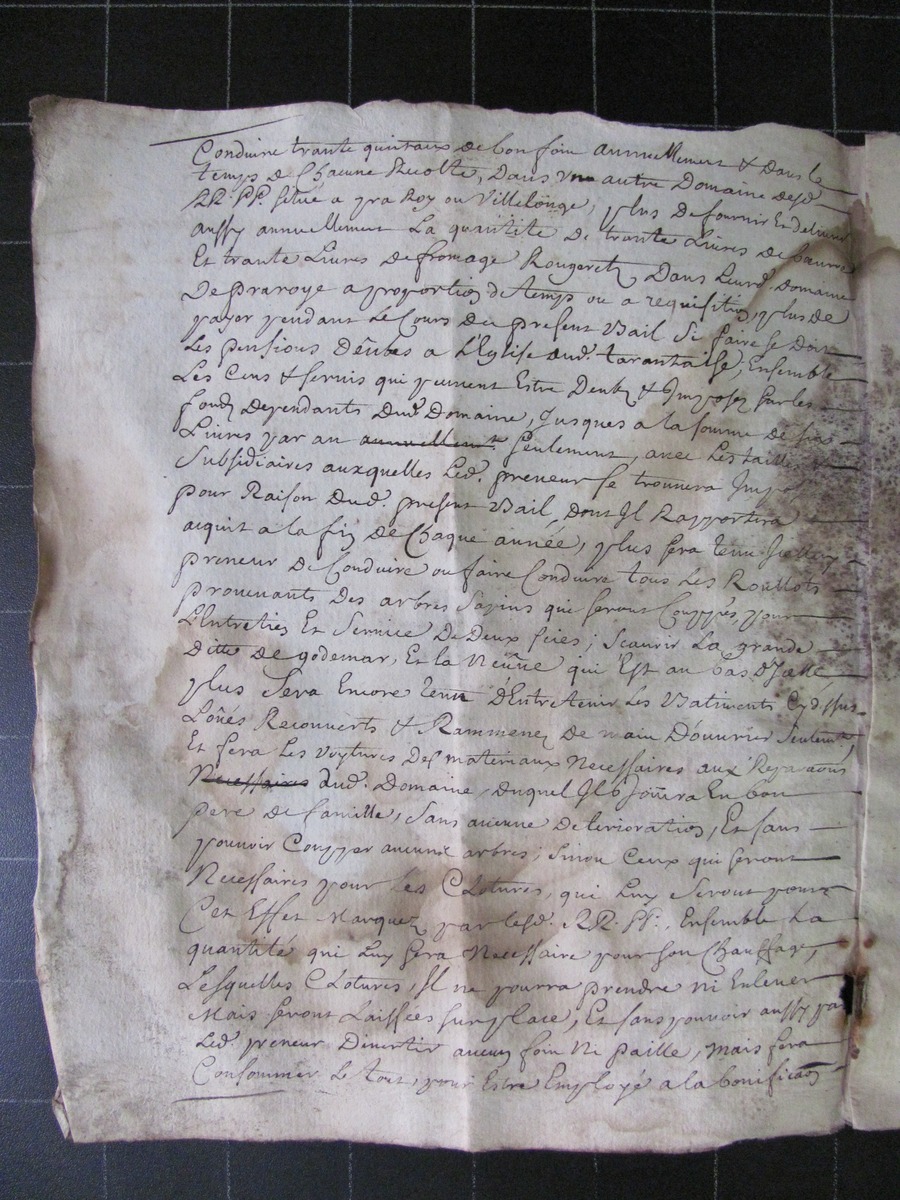 Conduire trante quintaux de bon foin annuellement & dans le
temps de Chacune Recolte, Dans un autre Domaine desd.
RR. PP. situé a pra Roy ou Villelonge, plus de fournir Et delivrer
aussy annuellement La quantité de trante Livres de beurre
Et trante Livres de fromage Rougeret, Dans Leurd. domaine
De praroye a proportion de temps ou a requisition, plus de
payer pendant Le Cours du present Bail Si faire se doit
Les pensions Dëues a L'Eglise dud. tarantaise, Ensemble
Les Cens & servis qui peuvent Estre Deubs & Imposez sur les
fonds dependants Dud. Domaine, Jusques a la somme de six
Livres par an annuellement seulement, avec Les tailles
Subsidiaires auxquelles Led. preneur se trouvera
pour Raison Dud. present Bail, dont Il Rapportera
acquit a la fin de Chaque année, plus sera tenu
preneur de Conduire ou faire Conduire tous Les Roullots
provenants Des arbres Sapins qui seront Couppés, pour
L'Entretien Et Service De Deux scies; scavoir La grande
Ditte de godemar, Et la Neüve qui Est au bas D'Icelle
plus Sera Encore tenu D'Entretenir Les Batiments Cydessus
Loüés Recouverts & Rammenez De main D'ouvrier Seulement,
Et fera Les voytures Des materiaux Necessaires aux Reparaons
Necessaires dud. Domaine, duquel Il Joüira En bon
pere de famille, Sans aucune deterioration, Et sans
pouvoir Coupper aucuns arbres; Sinon Ceux qui seront
Necessaires pour les Clotures, qui Luy Seront pour
Cet Effet Marquez par lesd. RR. PP., Ensemble La
quantité qui Luy sera Necessaire pour son Chauffage,
Lesquelles Clotures, Il ne pourra prendre ni Enlever
Mais seront Laissées sur place, Et sans pouvoir aussy par
Led. preneur Divertir aucun foin Ni paille, mais fera
Consommer Le tout, pour Estre Employé a la bonificaon